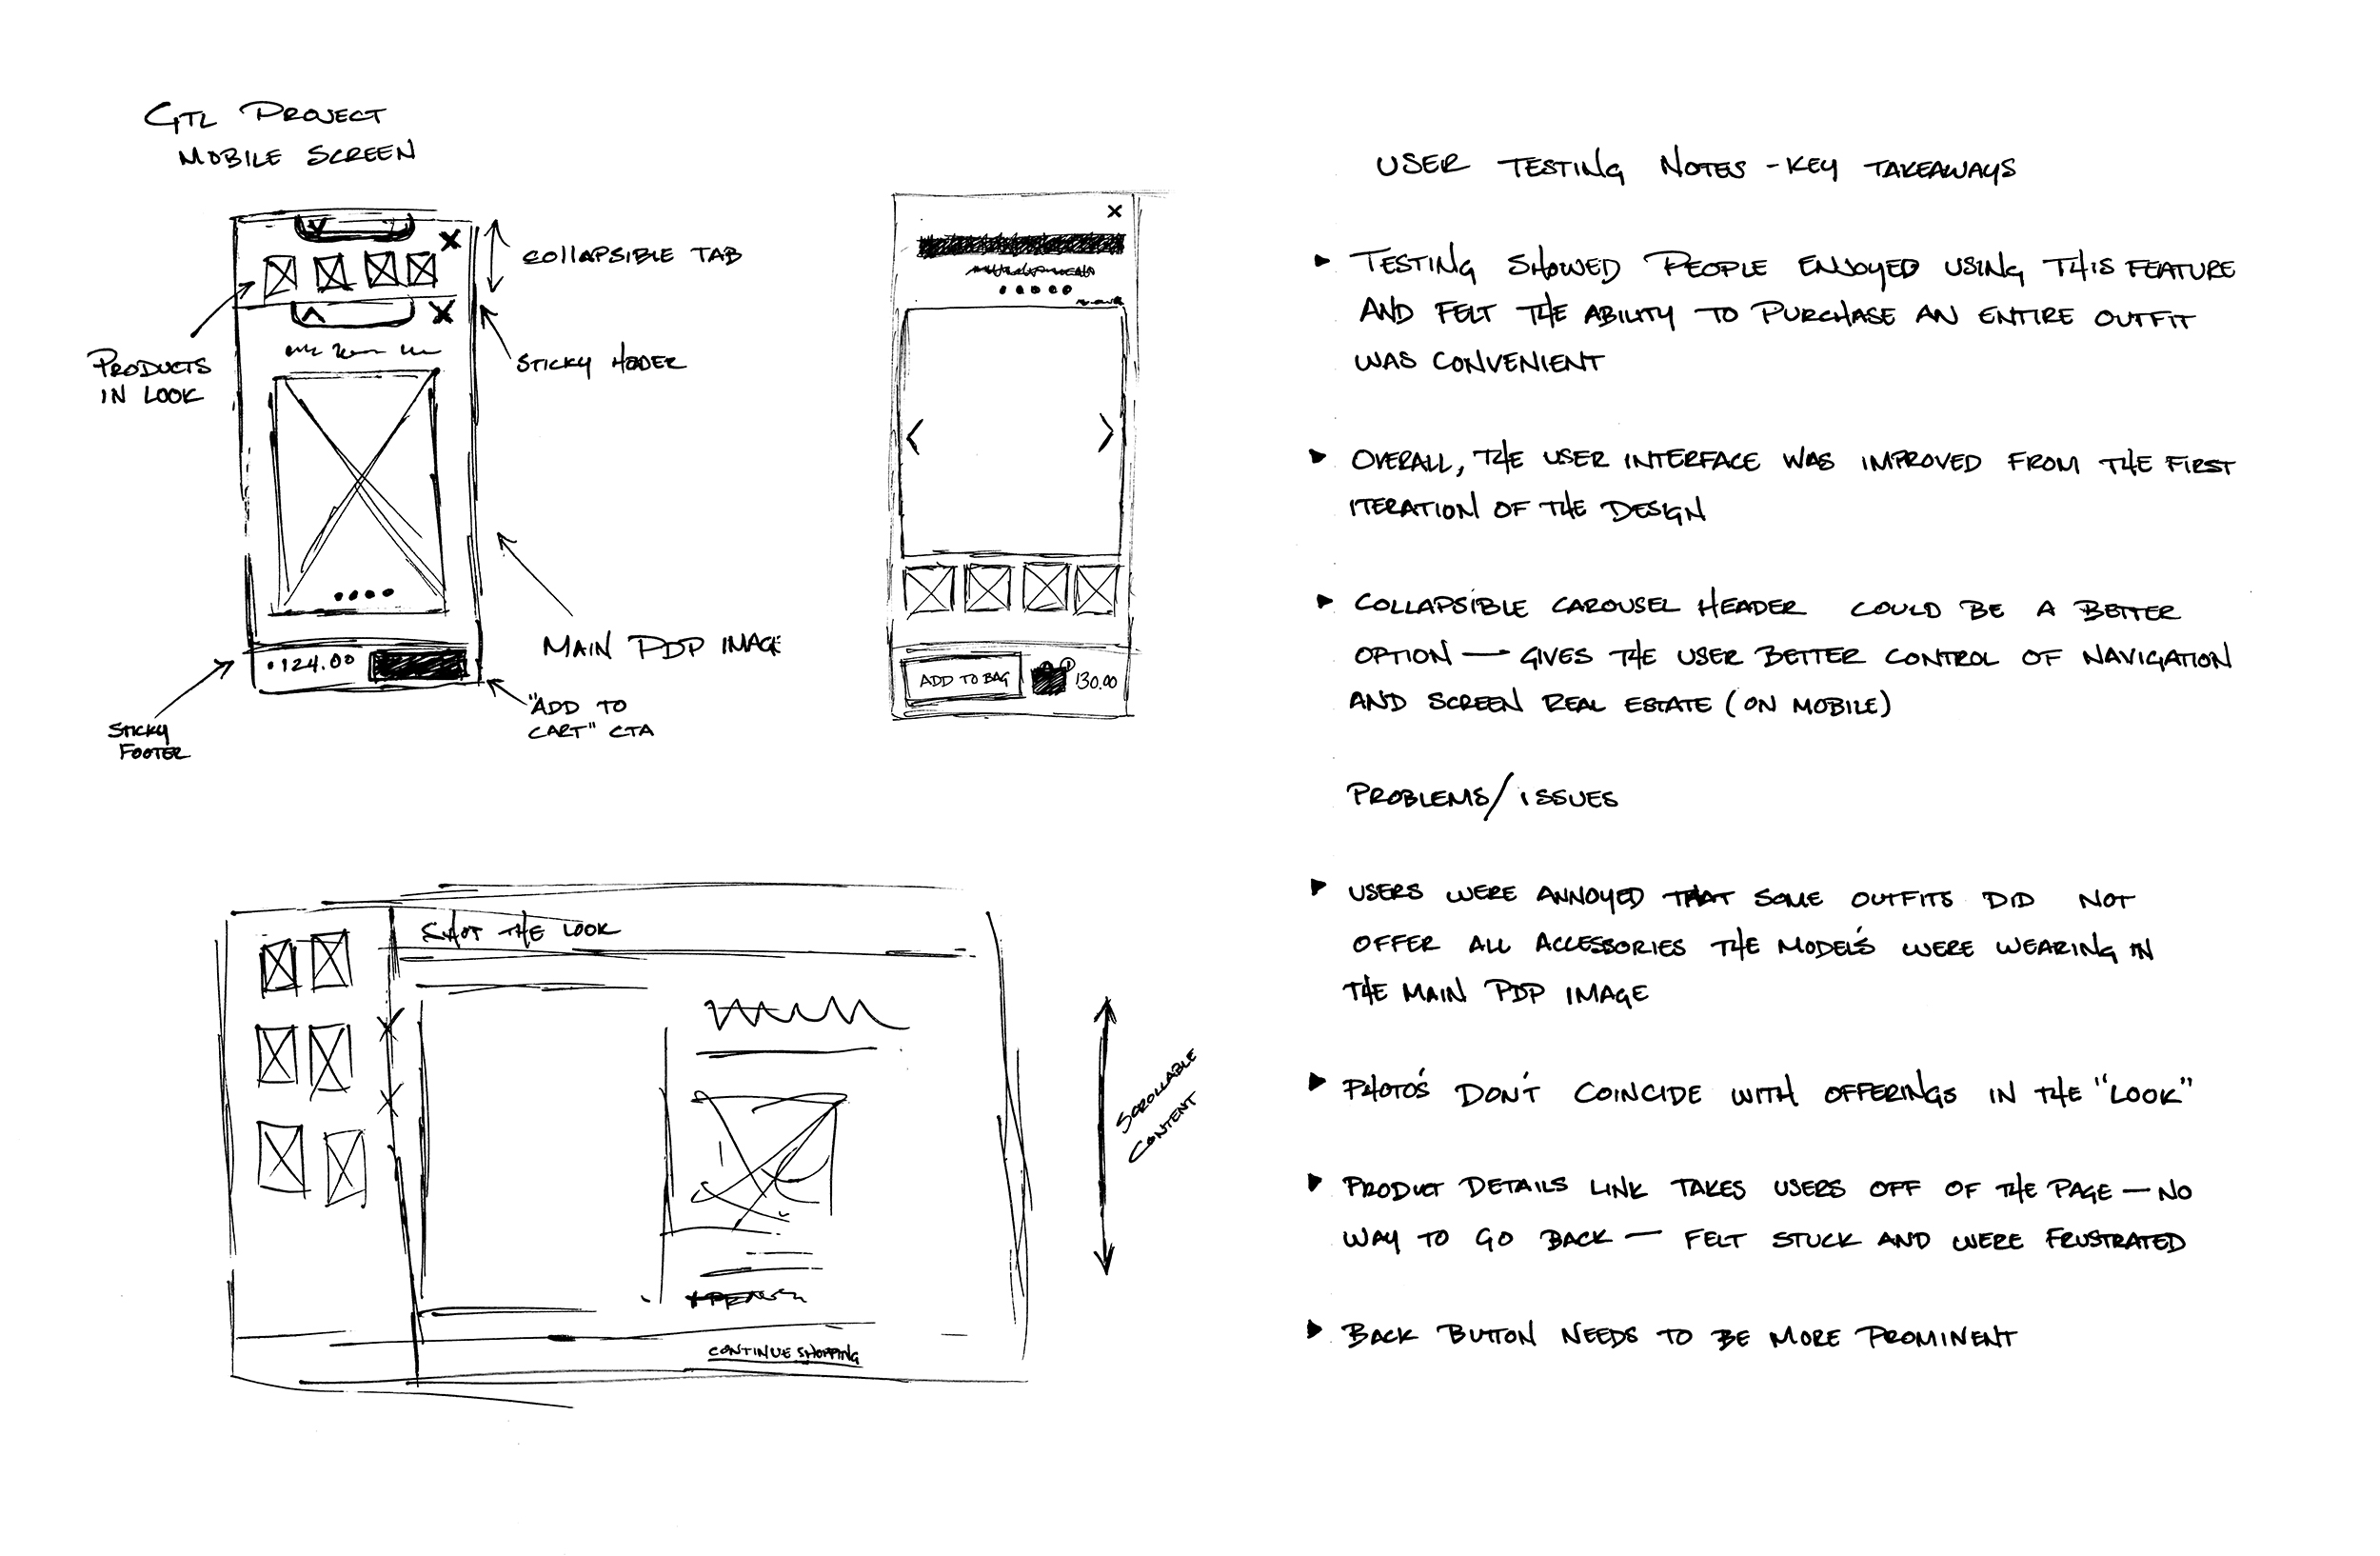 GTL PROJECT
MOBILE SCREEN
COLLAPSIBLE TAB
PRODUCTS
IN LOOK
STICKY HEADER
MAIN PDP IMAGE
124.00
STICKY
FOOTER
"ADD TO
CART" CTA
ADD TO BAG
130.00
THE LOOK
CONTINUE SHOPPING
SCROLLABLE
CONTENT
USER TESTING NOTES - KEY TAKEAWAYS
▸ TESTING SHOWED PEOPLE ENJOYED USING THIS FEATURE
AND FELT THE ABILITY TO PURCHASE AN ENTIRE OUTFIT
WAS CONVENIENT
▸ OVERALL, THE USER INTERFACE WAS IMPROVED FROM THE FIRST
ITERATION OF THE DESIGN
▸ COLLAPSIBLE CAROUSEL HEADER COULD BE A BETTER
OPTION — GIVES THE USER BETTER CONTROL OF NAVIGATION
AND SCREEN REAL ESTATE (ON MOBILE)
PROBLEMS/ISSUES
▸ USERS WERE ANNOYED THAT SOME OUTFITS DID NOT
OFFER ALL ACCESSORIES THE MODEL'S WERE WEARING IN
THE MAIN PDP IMAGE
▸ PHOTO'S DON'T COINCIDE WITH OFFERINGS IN THE "LOOK"
▸ PRODUCT DETAILS LINK TAKES USERS OFF OF THE PAGE — NO
WAY TO GO BACK — FELT STUCK AND WERE FRUSTRATED
▸ BACK BUTTON NEEDS TO BE MORE PROMINENT